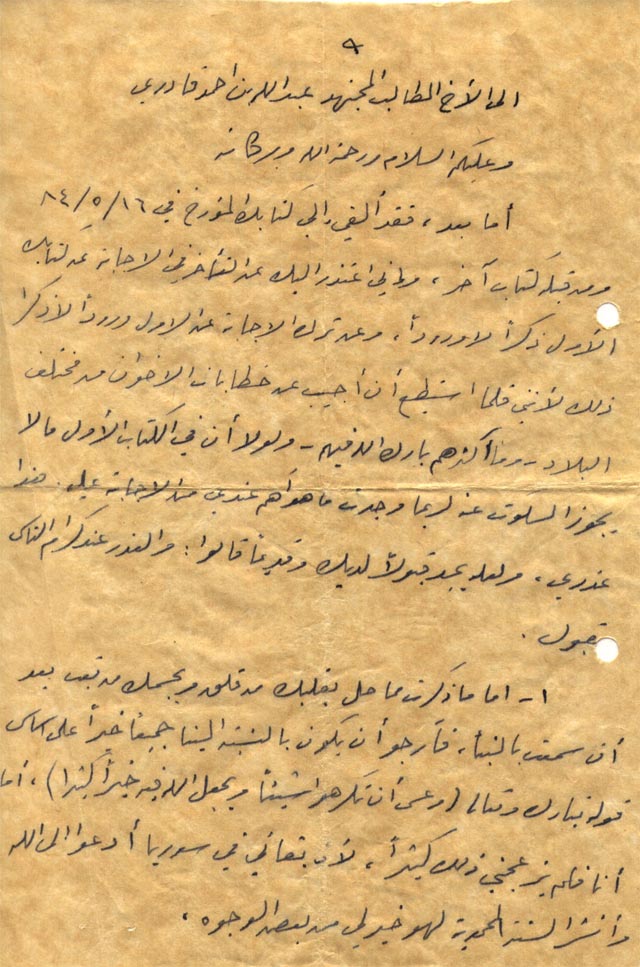 ٩
الى الأخ الطالب المجتهد عبد الله بن احمد قادري
وعليكم السلام ورحمة الله وبركاته
أما بعد، فقد ألقي إلي كتابك المؤرخ في ١٦/٥/٨٤
ومن قبله كتاب آخر، وإني اعتذر إليك عن التأخر في الاجابة عن كتابك
الأول ذكراً لا وروداً، وعن ترك الاجابة عن الاول وروداً لا ذكراً
ذلك لأنني قلما استطيع أن أجيب عن خطابات الاخوان من مختلف
البلاد - وما أكثرهم بارك الله فيهم - ولولا أن في الكتاب الأول مالا
يجوز السكوت عنه لربما وجدت ما هو أهم عندي من الاجابة عليه. هذا
عذري، ولعله يجد قبولاً لديك وقديماً قالوا: والعذر عند كرام الناس
مقبول.
١- اما ما ذكرت مما حل بقلبك من قلق وبجسمك من تعب بعد
أن سمعت بالنبأ، فأرجو أن يكون بالنسبة الينا جميعاً خيراً على
قوله تبارك وتعالى (وعسى أن تكرهوا شيئاً ويجعل الله فيه خيراً كثيرا)، أما
أنا فلم يزعجني ذلك كثيراً، لأن بقائي في سوريا أدعو الى الله
وأنشر السنة المحمدية لهو خير لي من بعض الوجوه،